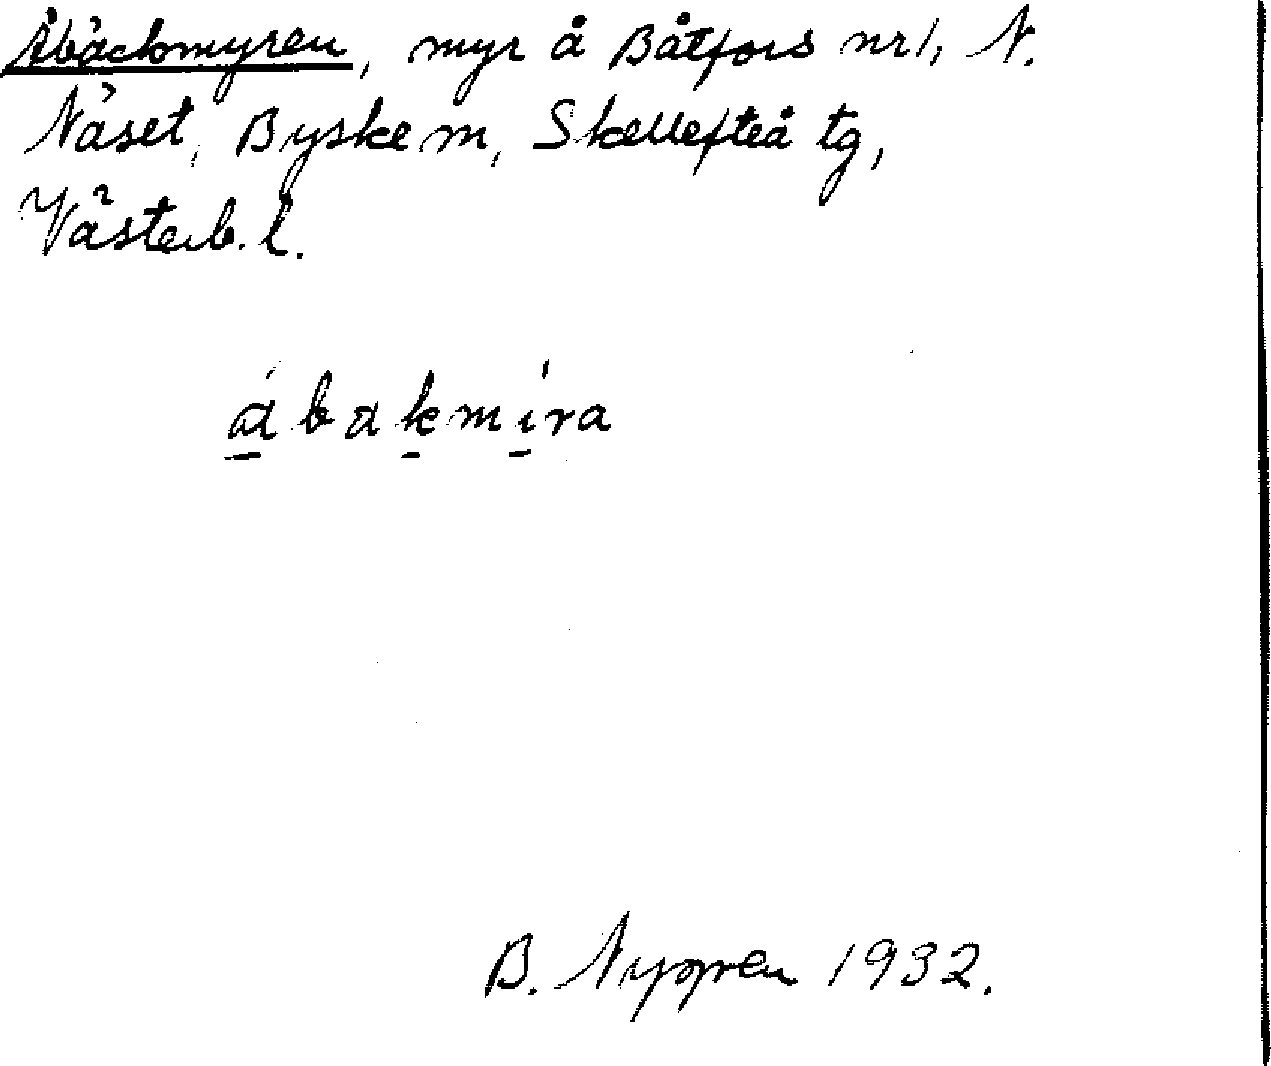 Åbäckmyren, myr å Båtfors nr 1, N.
Näset, Byske m, Skellefteå tg,
Västerb. l.
ábakmíra
B. Nygren 1932.